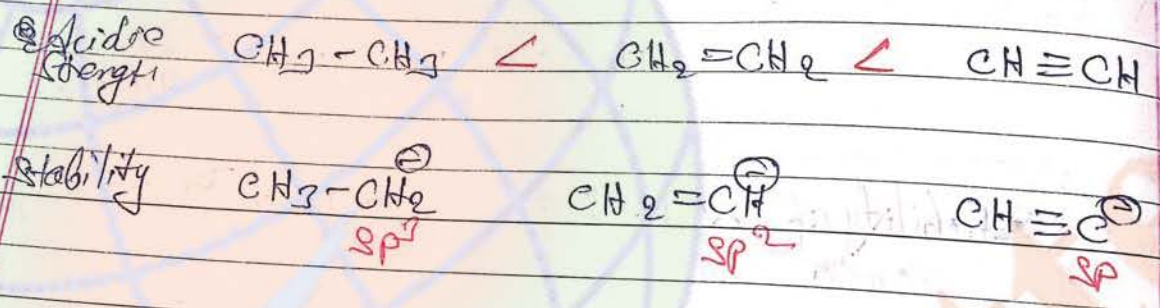 Acidic Strength CH3 - CH3 < CH2 = CH2 < CH ≡ CH
Stability CH3 - CH2⊖ CH2 = CH⊖ CH ≡ C⊖
sp3 sp2 sp